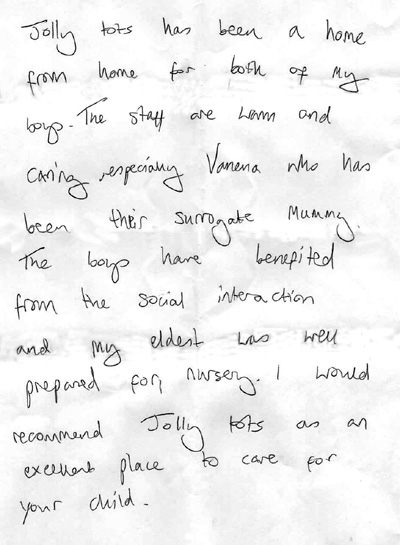 Jolly tots has been a home
from home for both of my
boys. The staff are warm and
caring, especially Vanena who has
been their surrogate mummy.
The boys have benefited
from the social interaction
and my eldest was well
prepared for nursery. I would
recommend Jolly tots as an
excellent place to care for
your child.